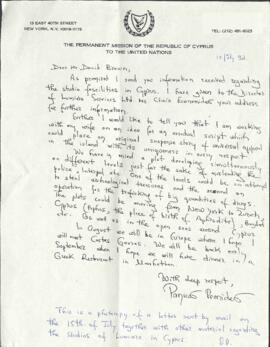 13 EAST 40TH STREET
NEW YORK, N.Y. 10016
TEL: (212)
THE PERMANENT MISSION OF THE REPUBLIC OF CYPRUS
TO THE UNITED NATIONS
Dear Mr David Brown,
As promised I send you information received regarding
the studio facilities in Cyprus. I have given to the Director
of Lumiere Services Ltd Mr Chris Economides your address
for further information.
Further I would like to tell you that I am working
with my wife on an idea for an original script which
could place an original suspense story of universal appeal
in the island with its uniqueness in every respect.
We have in mind a plot developing simultaneously
on different levels just for the sake of misleading the
police, Interpol etc. One of the levels could be an attempt
to steal technological and the second an
operation for the trafficking of big quantities of drugs.
The plots could be moving from New York to Zurich,
Cyprus (Paphos, the place of birth of Aphrodite), Baghdad
etc. as well as in the open seas around Cyprus.
In August we will be in Europe where I hope I
will meet Costas Gavras. We will be back end
September when I hope we will have dinner in a
Greek Restaurant in Manhattan.
With deep respect,
This is a photocopy of a letter sent by mail on
the 15th of July together with other material regarding
the studios of Lumiere in Cyprus